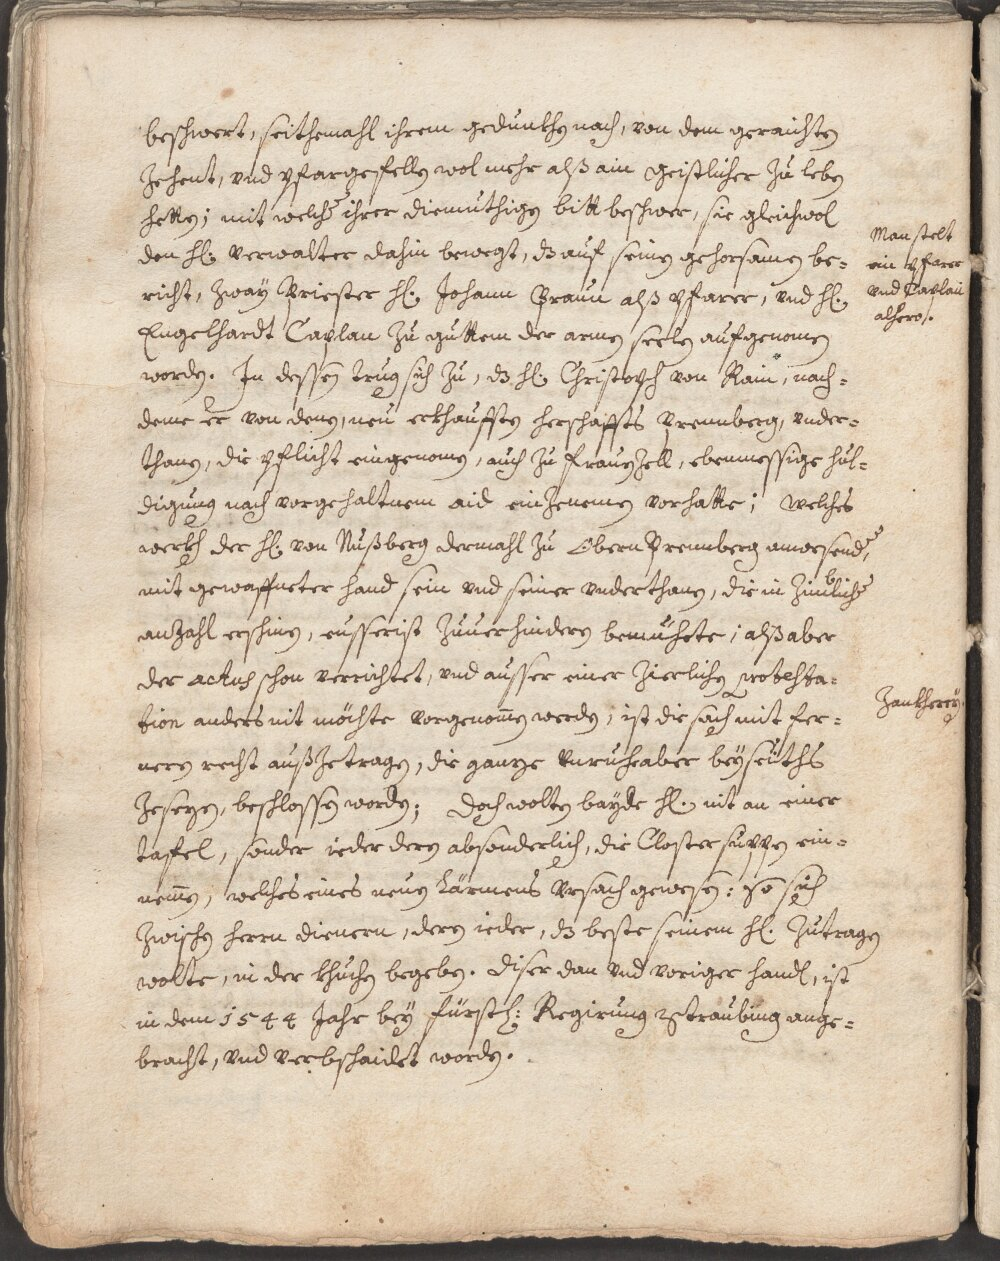 beschwert, seithemahl ihrem gedunkhen nach, von dem geraichten
Zehent, vnd pfargefellen wol mehr alß ain Geistlicher zu leben
hetten; mit welcher ihrer diemuthigen bitt beschwer, sie gleichwol
den H. Verwalter dahin bewegt, dz auf seinen gehorsamen be-
richt, zway Priester H. Johann Praun alß pfarer, vnd H.
Engelhardt Caplan zu guttem der armen seelen aufgenomen
worden. In dessen trug sich zu, dz H. Christoph von Rain, nach-
deme er von denen, neu erkhaufften herschaffts Prennberg, vnder-
thanen, die pflicht eingenomen, auch zu Frauenzell, ebenmessige hul-
digung nach vorgehaltnem aid einzenemen vorhatte; welches
werkh der H. von Nußberg dermahl zu Obern Prennberg anwesend,
mit gewaffneter hand sein vnd seiner vnderthanen, die in zimblicher
anzahl erschinen, eusserist zuuerhindern bemuhete; alß aber
der actus schon verrichtet, vnd ausser einer zierlichen protesta-
tion anders nit möchte vorgenommen werden, ist die sach mit fer-
neren recht außzetragen, die ganze vnruhe aber beyseuths
zesezen, beschlossen worden; Doch wolten bayde H. nit an einer
tafel, sonder ieder deren absonderlich, die Closter suppen ein-
nemmen, welches eines neuen Lärmens vrsach gewesen: so sich
zwischen herrn dienern, deren ieder, dz beste seinem H. zutragen
wolte, in der khuchen begeben. Diser dan vnd voriger handl, ist
in dem 1544 Jahr bey fürstl: Regirung Straubing ange-
bracht, vnd verbschaidet worden.
Man stelt
ein pfarer
vnd Caplan
alhero.
Zankherey.